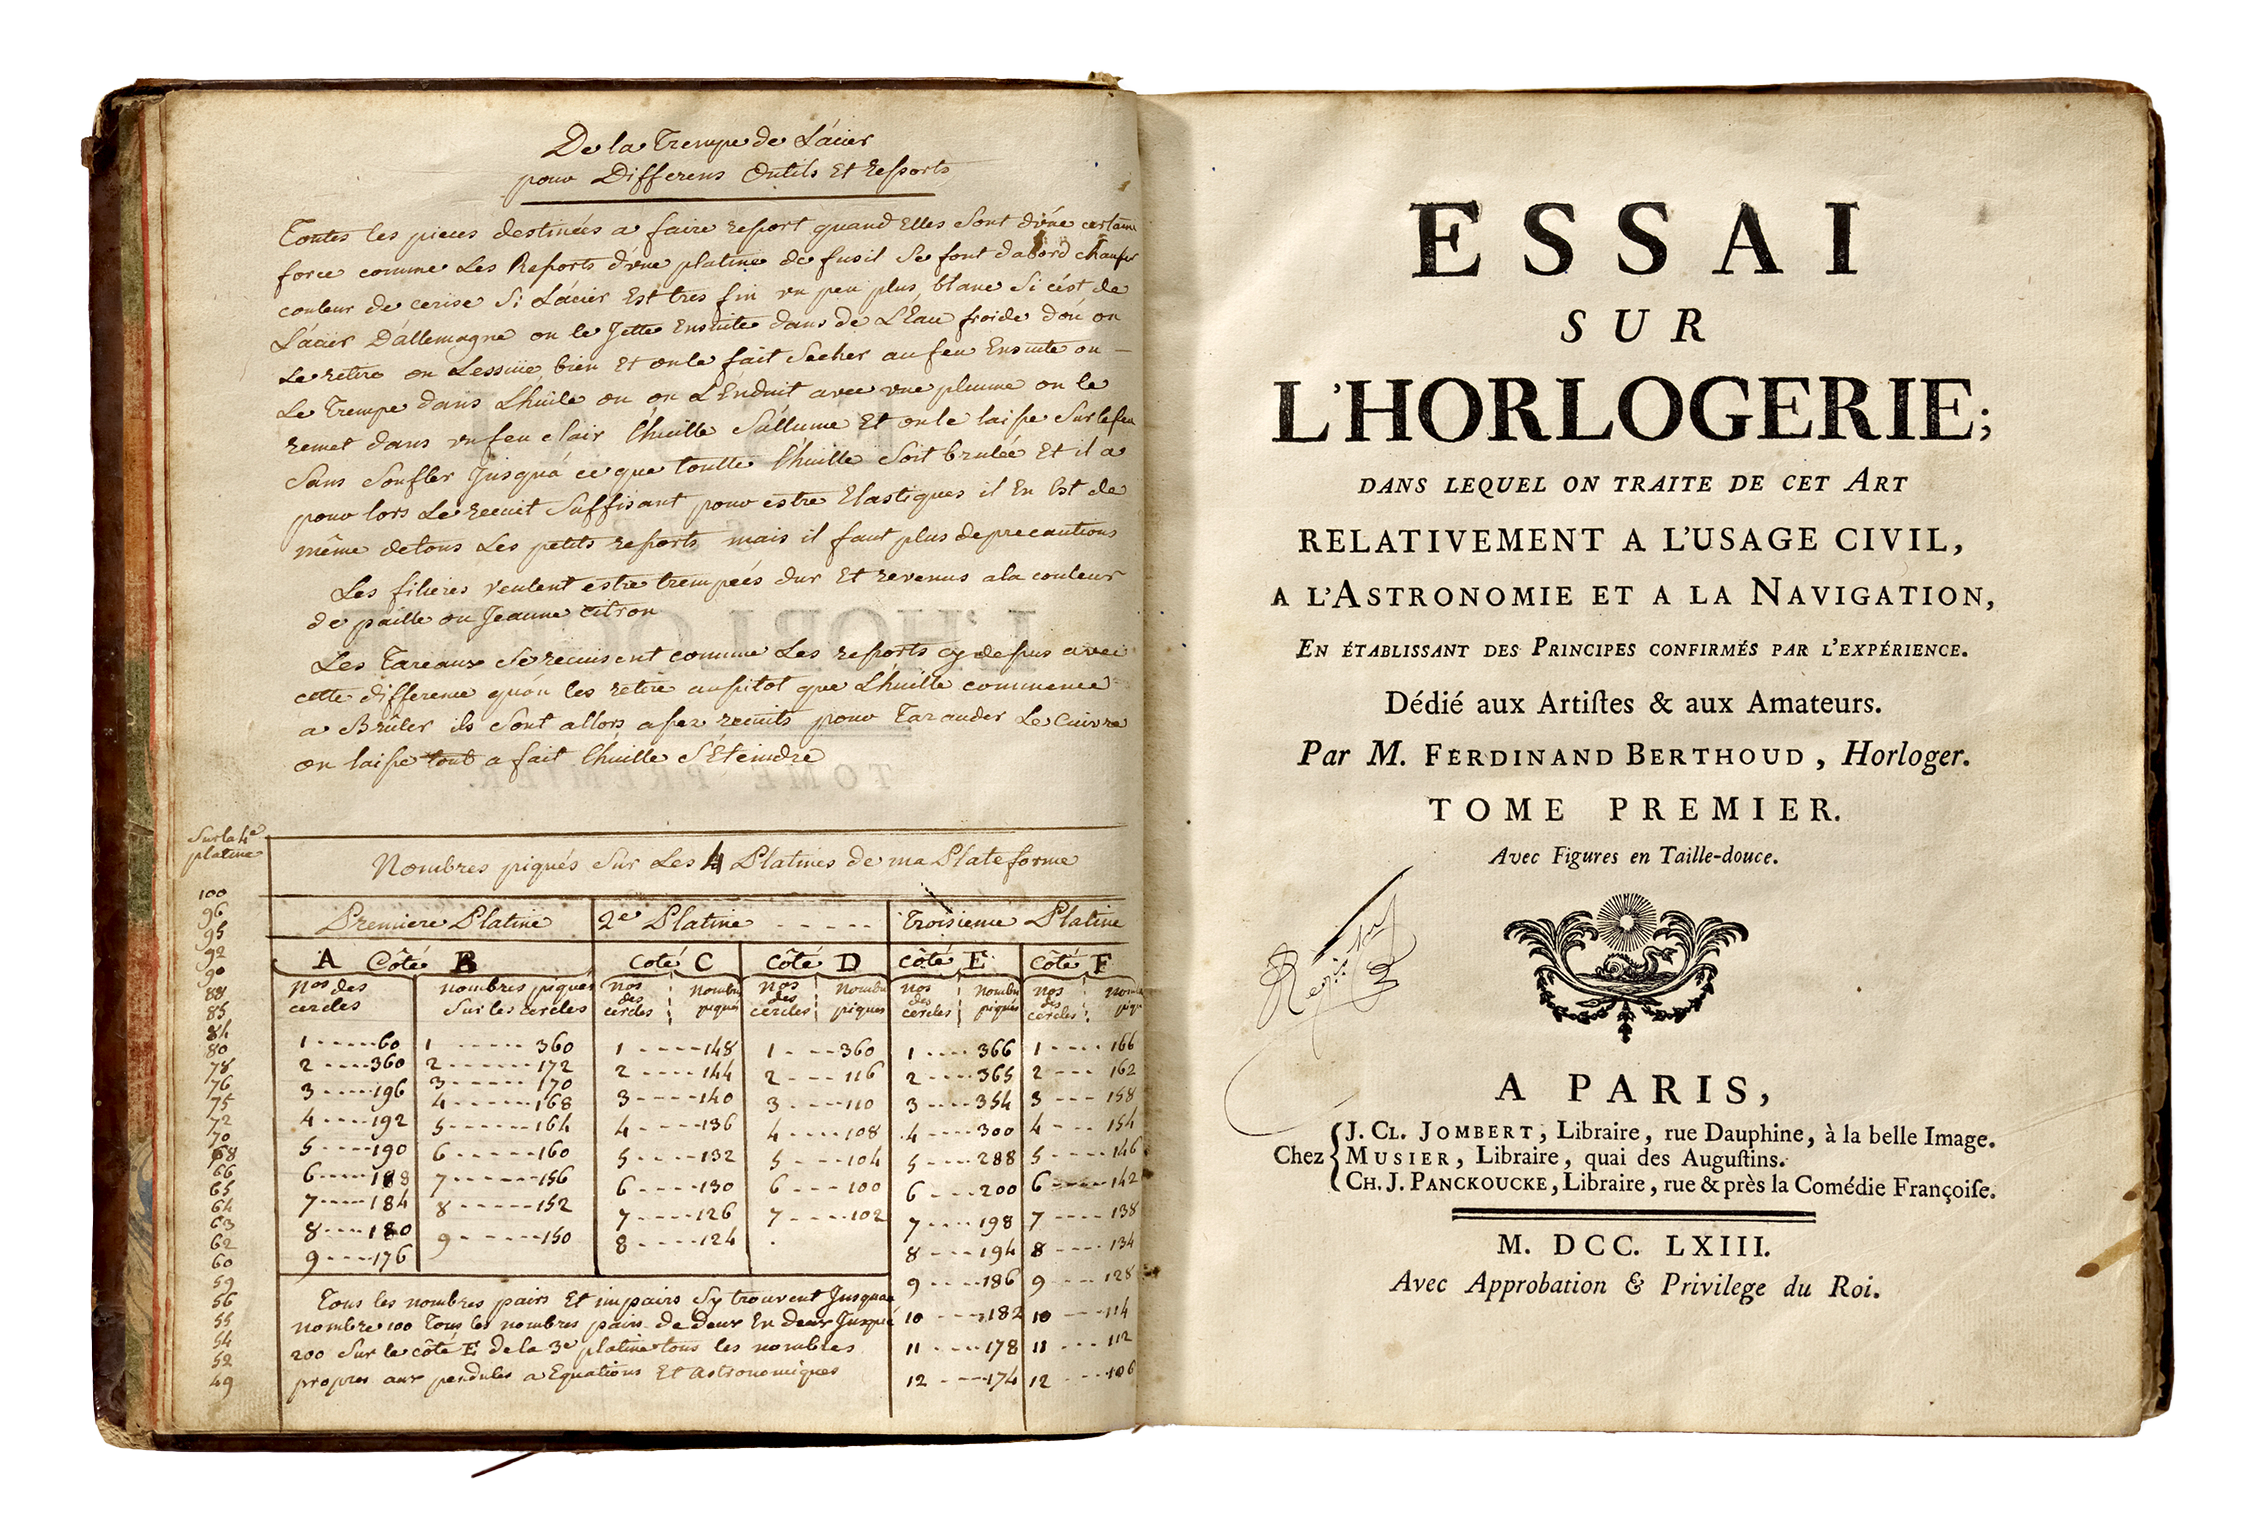 De la Trempe de L'acier
pour Differens Outils Et ressorts
Toutes les pieces destinées a faire ressort quand Elles sont d'une certaine
force comme Les Ressorts d'une platine de fusil Se font dabord chaufer
couleur de cerise Si L'acier Est tres fin un peu plus blanc Si c'est de
L'acier D'allemagne on le Jette Ensuite dans de L'Eau froide d'où on
Le retire on L'essuie bien Et on le fait Secher au feu Ensuite on
Le Trempe dans L'huile ou on L'Enduit avec une plume on le
remet dans un feu clair l'huille S'allume Et on le laisse Sur le feu
Sans Soufler Jusqu'a ce que toutte l'huille Soit brulée Et il a
pour lors Le recuit Suffisant pour estre Elastiques il En Est de
même de tous Les petits ressorts mais il faut plus de precautions
Les filieres veulent estre trempées dur Et revenus a la couleur
de paille ou Jeaune citron
Les Tareaux Se recuisent comme Les ressorts cy dessus avec
cette difference qu'on les retire aussitot que L'huille commence
a Brûler ils Sont allors assez recuits pour Tarauder Le Cuivre
on laisse tout a fait l'huille S'Eteindre
Sur la 4e
platine
100
96
95
92
90
88
85
84
80
78
76
75
72
70
68
66
65
64
63
62
60
59
56
55
54
52
49
Nombres piqués Sur Les 4 Platines de ma Plateforme
Premiere Platine 2e Platine - - - - - Troisieme Platine
A Côté B Coté C Côté D Côté E Côté F
Nos des cercles nombres piqués Sur les cercles nos des cercles Nombres piqués nos des cercles Nombres piqués nos des cercles Nombres piqués nos des cercles
1 ----- 60 1 ----- 360 1 ----- 148 1 ---- 360 1 ---- 366 1 ---- 166
2 ----- 360 2 ----- 172 2 ----- 144 2 ---- 116 2 ---- 365 2 ---- 162
3 ----- 196 3 ----- 170 3 ----- 140 3 ---- 110 3 ---- 354 3 ---- 158
4 ----- 192 4 ----- 168 4 ----- 136 4 ---- 108 4 ---- 300 4 ---- 154
5 ----- 190 5 ----- 164 5 ----- 132 5 ---- 104 5 ---- 288 5 ---- 146
6 ----- 188 6 ----- 160 6 ----- 130 6 ---- 100 6 ---- 200 6 ---- 142
7 ----- 184 7 ----- 156 7 ----- 126 7 ---- 102 7 ---- 198 7 ---- 138
8 ----- 180 8 ----- 152 8 ----- 124 8 ---- 194 8 ---- 134
9 ----- 176 9 ----- 150 9 ---- 186 9 ---- 128
10 ---- 182 10 ---- 114
11 ---- 178 11 ---- 112
12 ---- 174 12 ---- 106
Tous les nombres pairs Et impairs S'y trouvent Jusquau
nombre 100 Tous les nombres pairs de deux En deux Jusque
200 Sur le côté E de la 3e platine tous les nombres
propres aux pendules a Equations Et Astronomiques
ESSAI
SUR
L'HORLOGERIE;
DANS LEQUEL ON TRAITE DE CET ART
RELATIVEMENT A L'USAGE CIVIL,
A L'ASTRONOMIE ET A LA NAVIGATION,
EN ÉTABLISSANT DES PRINCIPES CONFIRMÉS PAR L'EXPÉRIENCE.
Dédié aux Artiſtes & aux Amateurs.
Par M. FERDINAND BERTHOUD, Horloger.
TOME PREMIER.
Avec Figures en Taille-douce.
A PARIS,
Chez
J. CL. JOMBERT, Libraire, rue Dauphine, à la belle Image.
MUSIER, Libraire, quai des Auguſtins.
CH. J. PANCKOUCKE, Libraire, rue & près la Comédie Françoiſe.
M. DCC. LXIII.
Avec Approbation & Privilege du Roi.